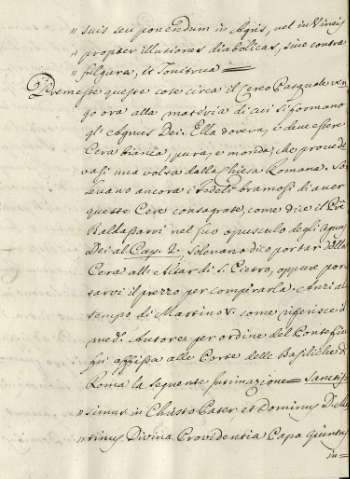 " suis seu ponendum in Agris, vel in Vineis
" propter illusiones diabolicas, sive contra
" fulgura, et Tonitrua =
Premesse queste cose circa il Cereo Pasquale ven
go ora alla materia di cui si formano
gli Agnus Dei. Ella doveva, e deve essere
Cera bianca, pura, e monda, che provede
vasi una volta dalla Chiesa Romana. So
levano ancora i Fedeli bramosi di aver
queste Cere consagrate, come dice il Cře
Baldassarri nel suo opuscolo degli Agnus
Dei al Cap. 2. solevano dico portar della
Cera all' Altar di S. Pietro, oppure por
tarvi il prezzo per comprarla. Anzi al
tempo di Martino V. come riferisce il
med.° Autore per ordine del Pontefice
fù affissa alle Porte delle Basiliche di
Roma la seguente intimazione = Sanctis
" simus in Christo Pater, et Dominus D. Ma
" rtinus Divina Providentia Papa Quintus
in=